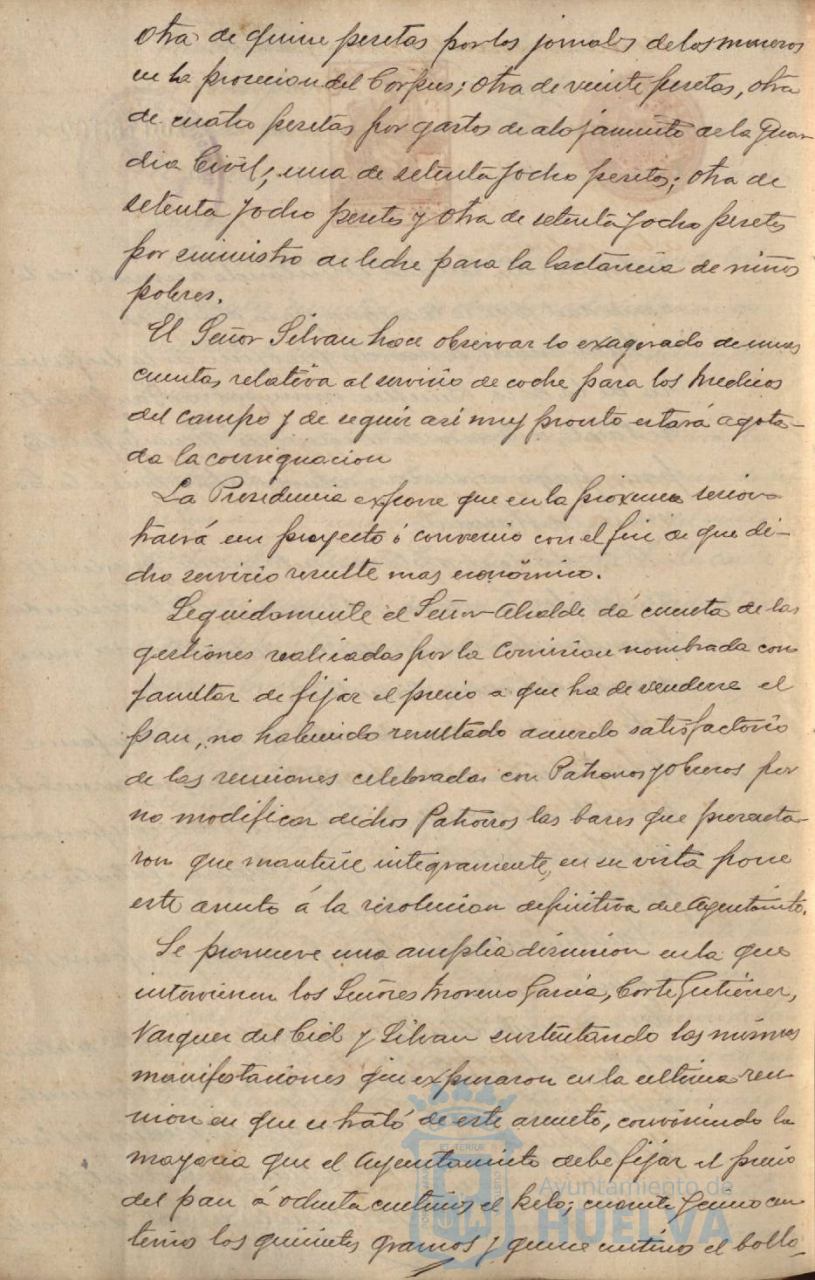 otra de quince pesetas por los jornales de los maceros
en la procecion del Corpus; otra de veinte pesetas, otra
de cuatro pesetas por gastos de alojamiento de la Guar
dia Civil; una de setenta y ocho pesetas; otra de
setenta y ocho pesetas y otra de setenta y ocho pesetas
por suministro de leche para la lactancia de niños
pobres.
El Señor Silvan hace observar lo exagerado de unas
cuentas relativa al servicio de coche para los Medicos
del campo y de seguir asi muy pronto estará agota-
da la consignacion
La Presidencia expone que en la proxima sesion
traerá un proyecto ó convenio con el fin de que di-
cho servicio resulte mas económico.
Seguidamente el Señor Alcalde dá cuenta de las
gestiones realizadas por la Comision nombrada con
facultar de fijar el precio a que ha de venderse el
pan, no habiendo resultado acuerdo satisfactorio
de las reuniones celebradas con Patronos y obreros por
no modificar dichos Patronos las bases que presenta-
ron que mantiene integramente, en su vista pone
este asunto á la resolucion definitiva del Ayuntamto.
Se promueve una amplia discusion en la que
intervienen los Señores Moreno Garcia, Corte Gutiérrez,
Vazquez del Cid y Silvan sustentando las mismas
manifestaciones que expusaron en la ultima reu
nion en que se trató de este asunto, conviniendo la
mayoria que el Ayuntamiento debe fijar el precio
del pan á ochenta centimos el kilo; cuarenta y cinco cen
timos los quinientos gramos y quince centimos el bollo
ET TERRAE
Ayuntamiento de
HUELVA